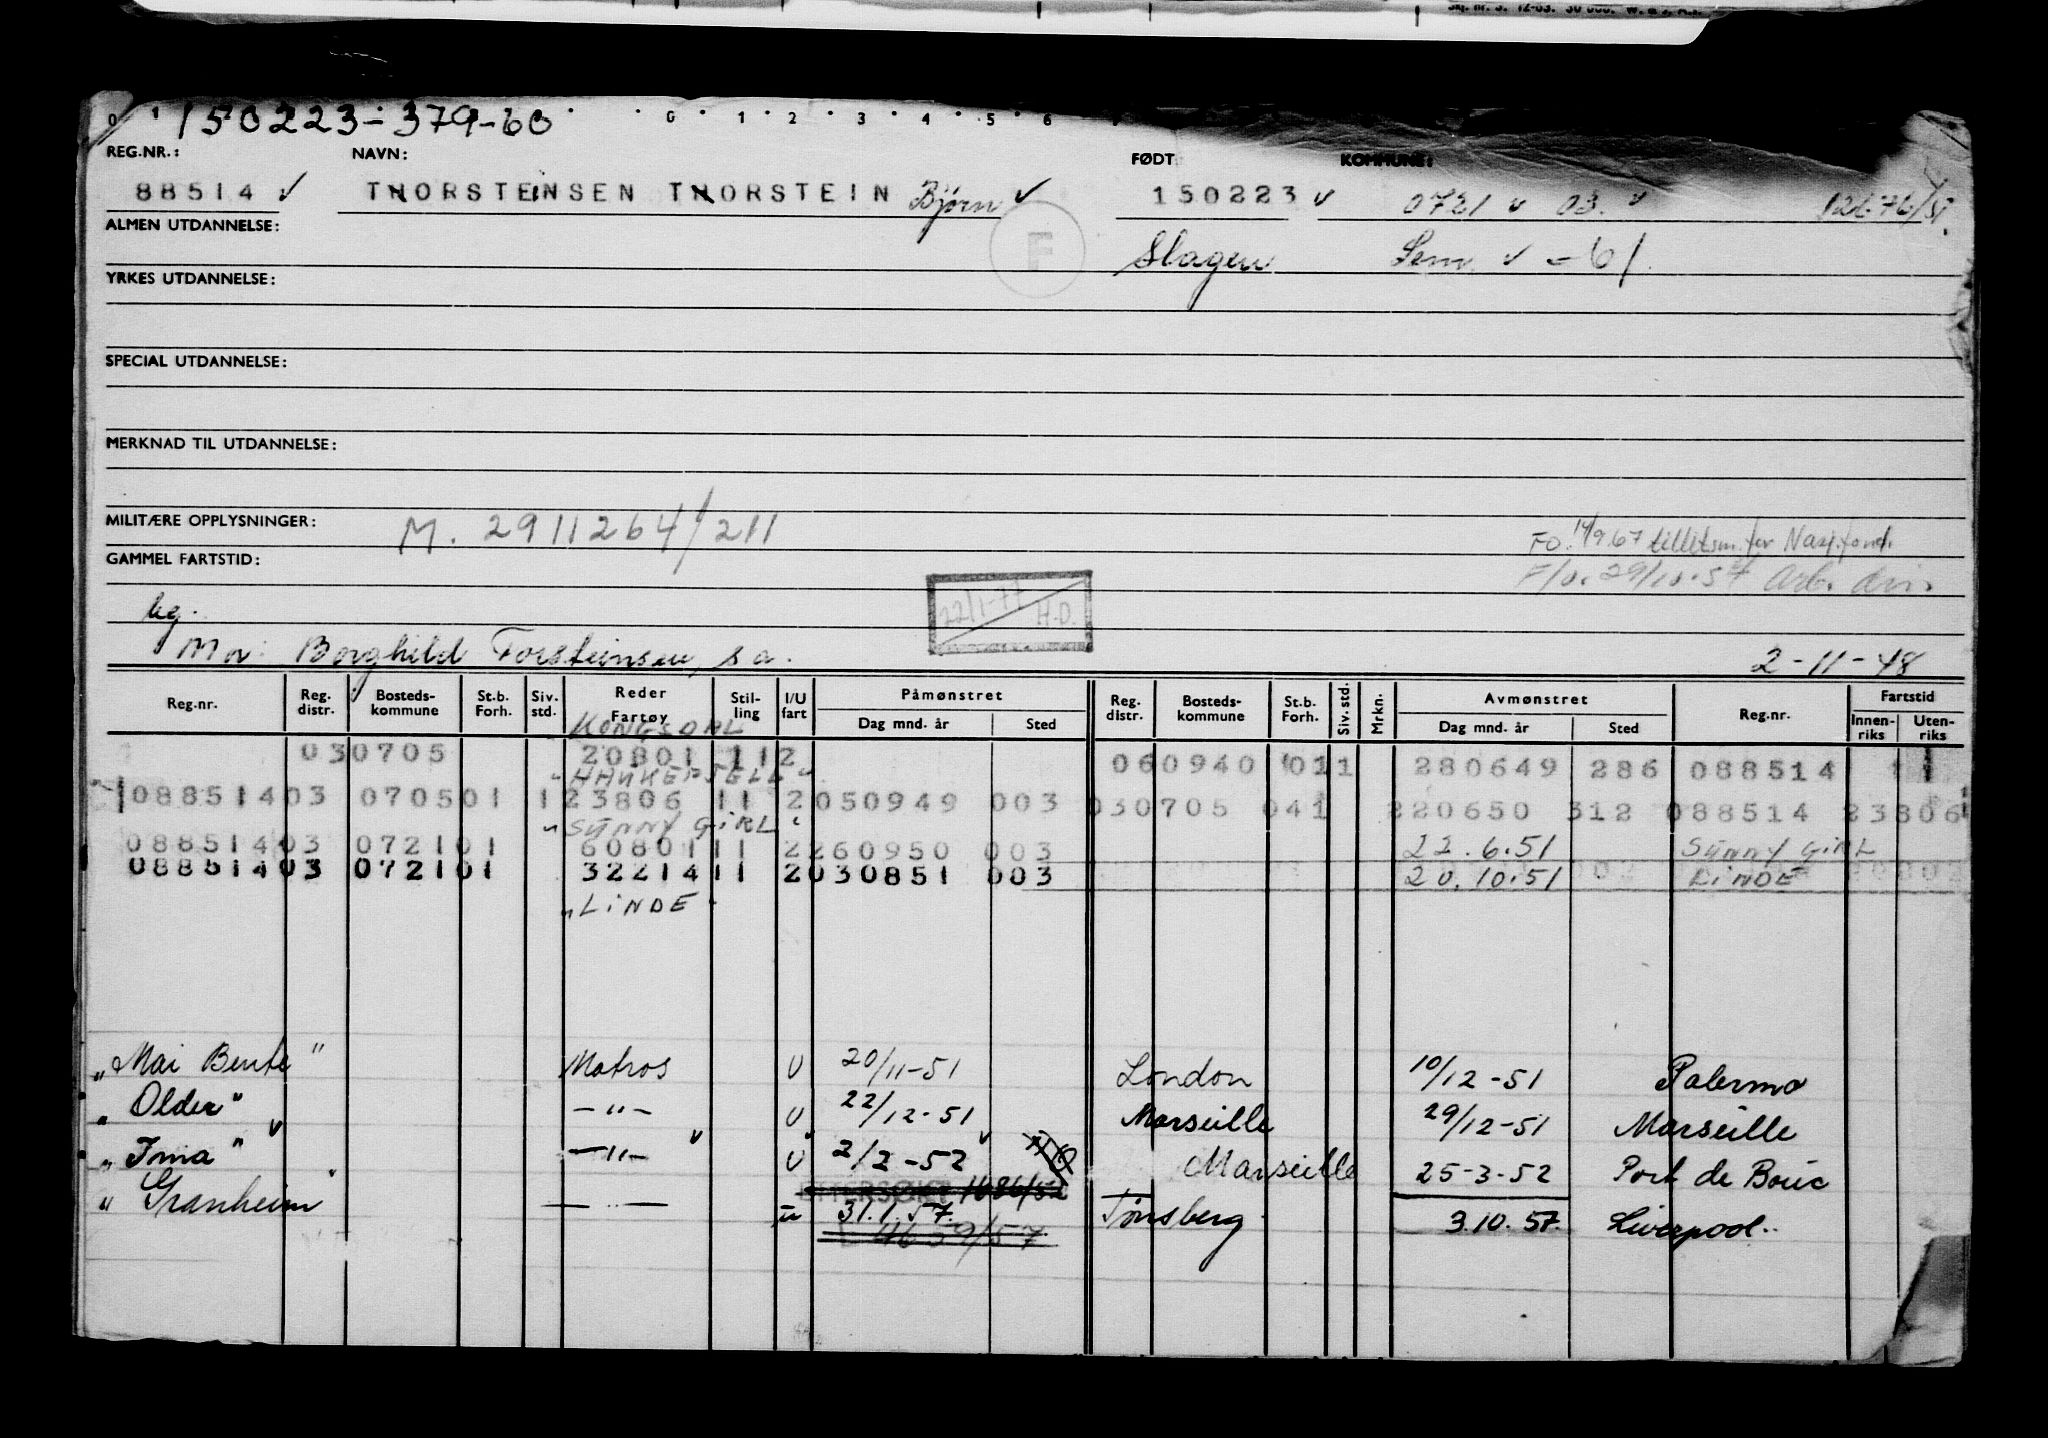 150223-379-60
0 1 2 3 4 5 6
REG.NR.: NAVN: FØDT KOMMUNE:
88514 ✓ THORSTEINSEN THORSTEIN Björn ✓ 150223 ✓ 0721 ✓ 03. ✓ 12676/51.
ALMEN UTDANNELSE: F Slagen Sem ✓ - 61.
YRKES UTDANNELSE:
SPECIAL UTDANNELSE:
MERKNAD TIL UTDANNELSE:
MILITÆRE OPPLYSNINGER: M. 2911264/211
FO. 14/9.67 tillitsm. for Nasj.fond.
GAMMEL FARTSTID: F/O. 29/10.57 Arb. div.
ug. 22/1-77 H.D.
Mor: Borghild Torsteinsen, s a. 2-11-48
Reg.nr. Reg. distr. Bosteds- kommune St.b. Forh. Siv. std. Reder Fartøy Stil- ling I/U fart Påmønstret Dag mnd. år Sted Reg. distr. Bosteds- kommune St.b. Forh. Siv. std. Mrkn. Avmønstret Dag mnd. år Sted Reg.nr. Fartstid Innen- riks Uten- riks
KONGSDAL
030705 20801 112 060940 011 280649 286 088514
088514 03 070501 1 23806 11 2 050949 003 030705 041 220650 312 088514 23806
"SUNNY GIRL"
088514 03 072101 60801 11 2 260950 003 22.6.51 SUNNY GIRL
088514 03 072101 32214 11 2 030851 003 20.10.51 LINDE
"LINDE"
"Mai Bente" Matros U 20/11-51 London 10/12-51 Palermo
"Older" -"- U 22/12-51 Marseille 29/12-51 Marseille
"Irma" -"- U 2/2-52 Marseille 25-3-52 Port de Bouc
ETTERSØKT 1686/52
"Granheim" — — u 31.1.57. Tønsberg 3.10.57. Liverpool.
4639/57